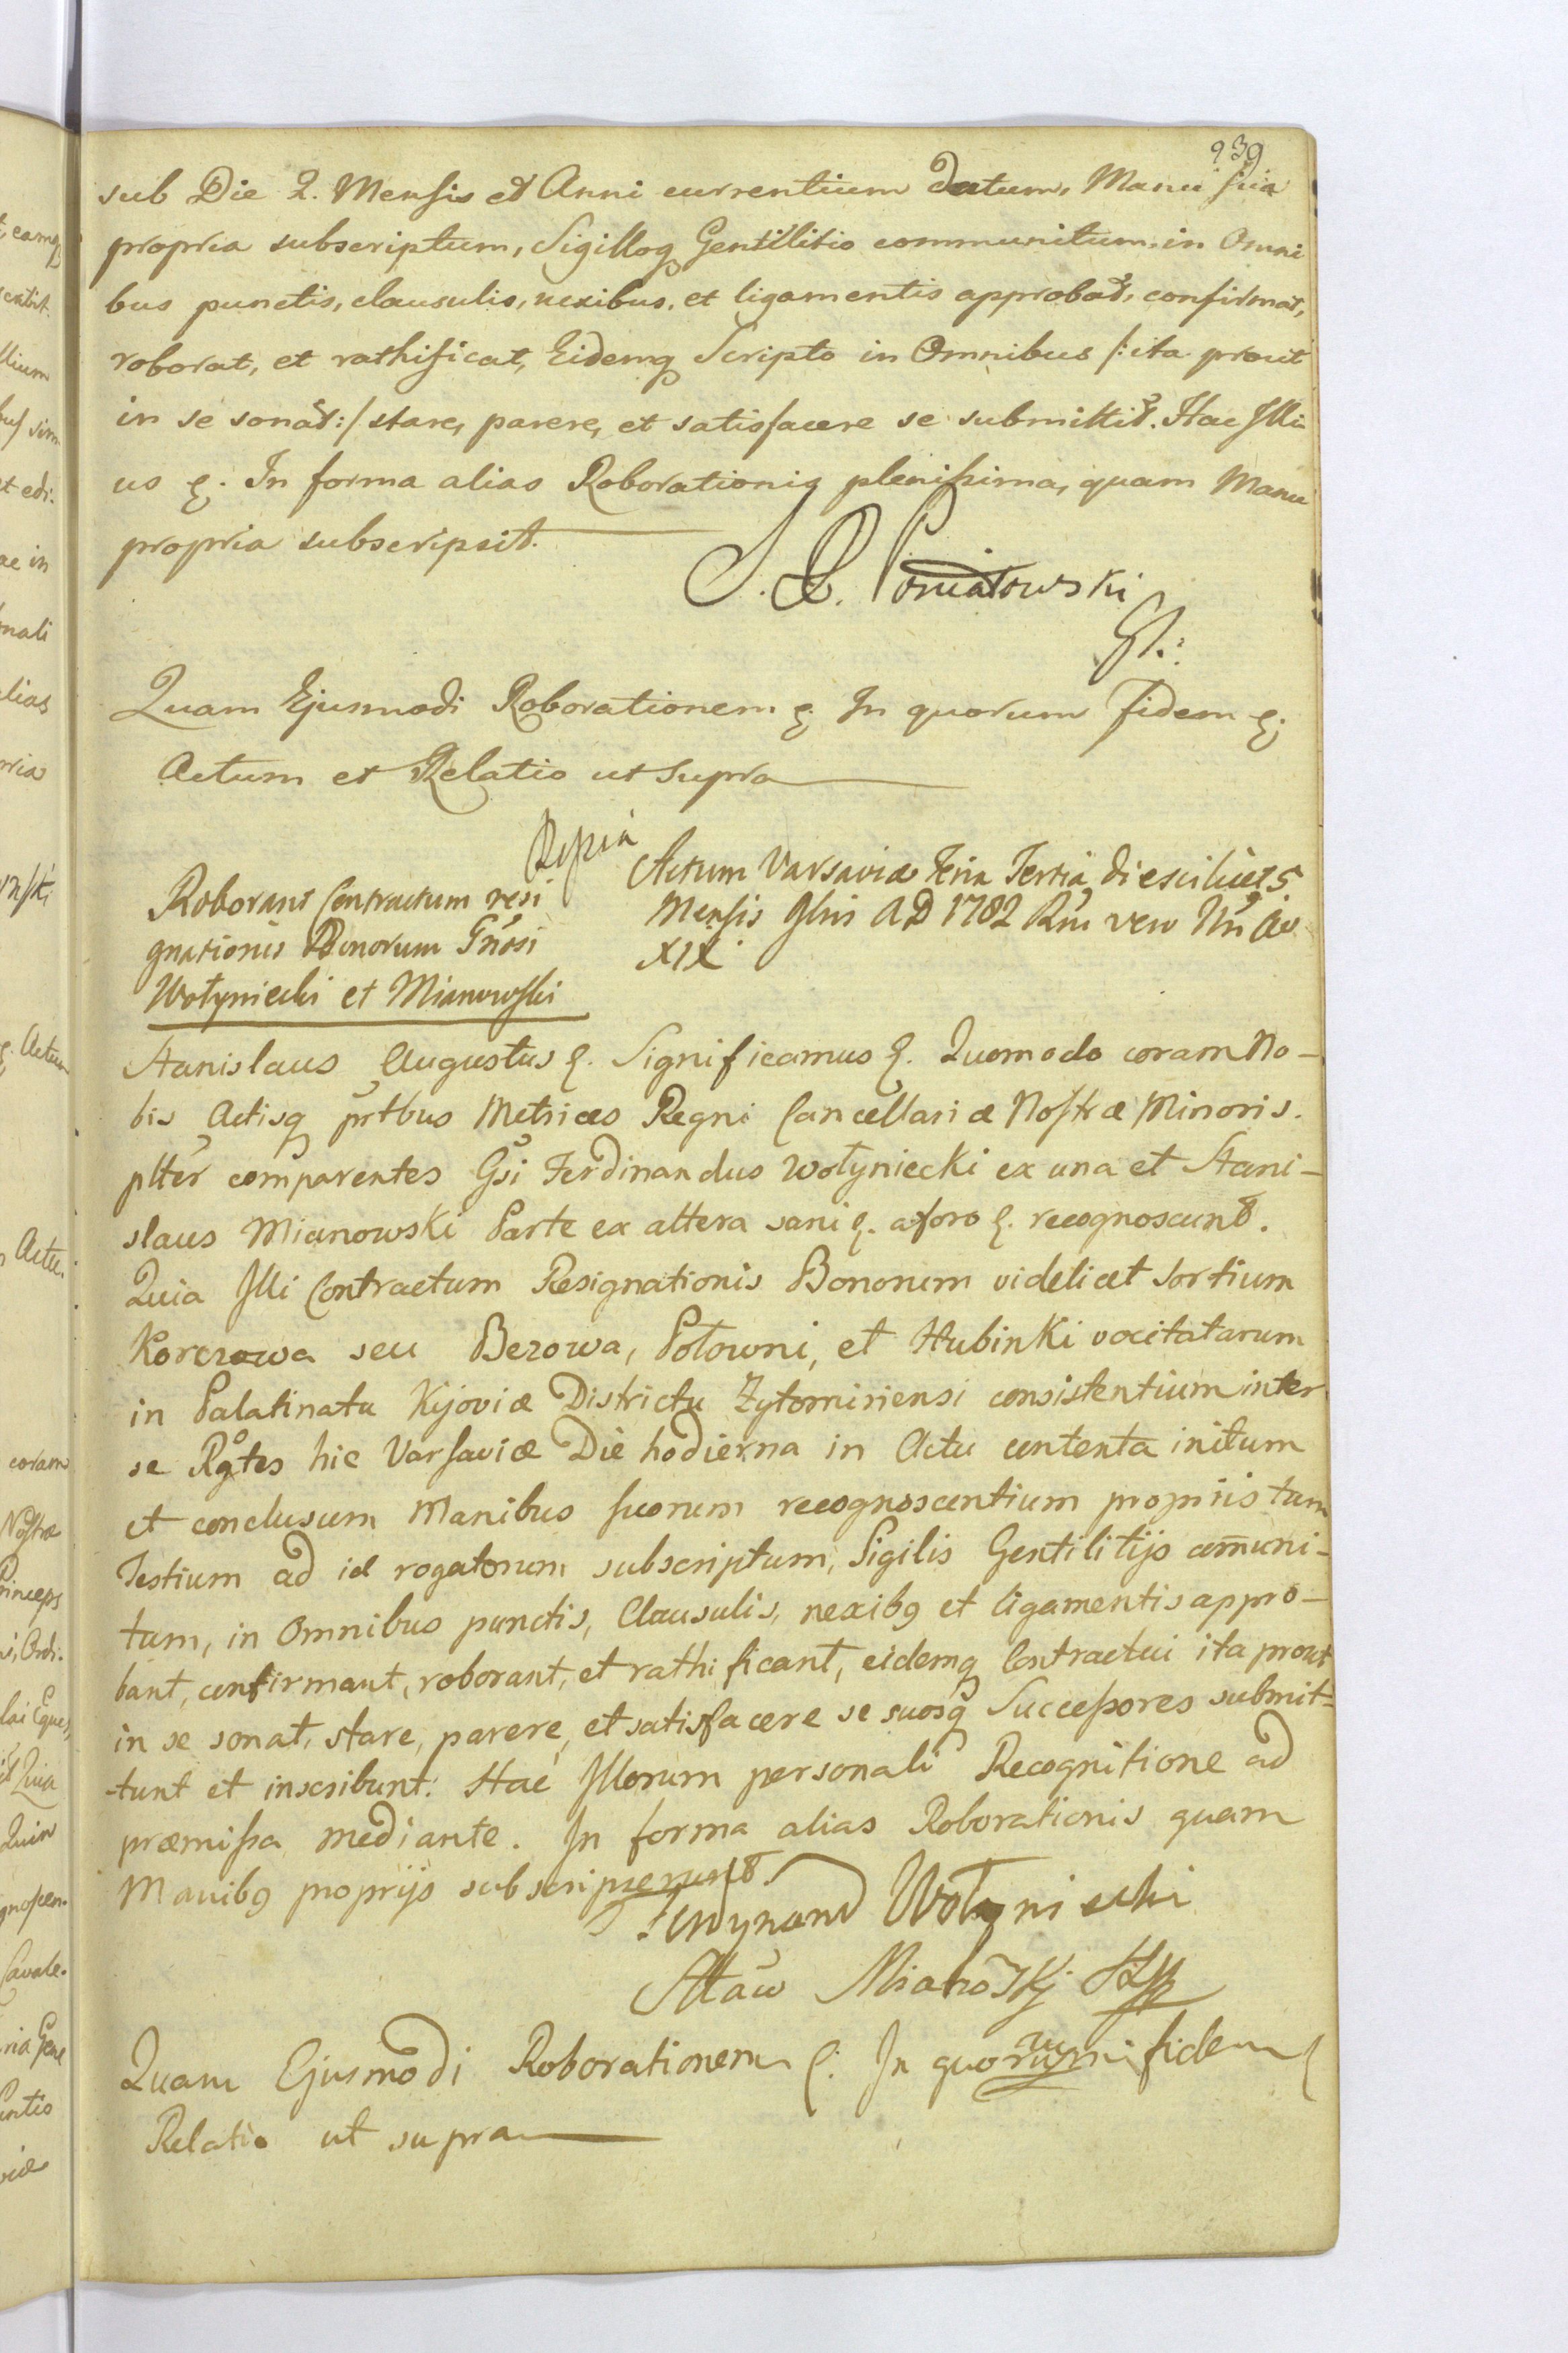 939
sub Die 2. Mensis et Anni currentium Datum, Manu sua
propria subscriptum, Sigilloq Gentilitio communitum, in Omni
bus punctis, clausulis, nexibus, et ligamentis approbat, confirmat,
roborat, et rathificat, Eidemq Scripto in Omnibus /: ita prout
in se sonat :/ stare, parere, et satisfacere se submittit. Hac Illi
us &. In forma alias Roborationis plenissima, quam Manu
propria subscripsit.
Poniatowski
Quam Ejusmodi Roborationem & In quorum Fidem &
Actum et Relatio ut Supra
Roborant Contractum resi
gnationis Bonorum Gnosi
Wołyniecki et Mianowski
Actum Varsaviæ Feria Tertia, die scilicet 5
Mensis 9bris AD 1782 Rni vero Nri Ao
XIX
Stanislaus Augustus &. Significamus &. Quomodo coram No-
bis Actisq prtbus Metrices Regni Cancellariæ Nostræ Minoris.
plter comparentes Gsi Ferdinandus Wołyniecki ex una et Stani-
slaus Mianowski Parte ex altera sani &. a foro &. recognoscunt.
Quia Illi Contractum Resignationis Bonorum videlicet Sortium
Korczowa seu Bezowa, Połowni, et Hubinki vocitatarum
in Palatinatu Kijoviæ Districtu Zytomiriensi consistentium inter
se Rgtes hic Varsaviæ Die hodierna in Actu contenta initum
et conclusum Manibus suorum recognoscentium propriis tum
Testium ad id rogatorum subscriptum, Sigilis Gentilitijs com̅uni-
tum, in Omnibus punctis, Clausulis, nexibq et ligamentis appro-
bant, confirmant, roborant, et rathificant, eidemq Contractui ita prout
in se sonat, stare, parere, et satisfacere se suosq Successores submit-
-tunt et inscribunt. Hac Illorum personali Recognitione ad
præmissa mediante. In forma alias Roborationis quam
Manibq proprijs subscripserunt.
Ferdynand Wołyniecki
Sttaw Mianoski
Quam Ejusmodi Roborationem &. In quorum fidem &
Relatio ut supra